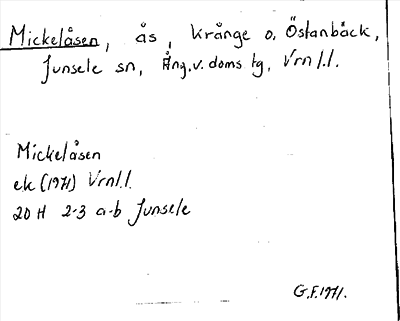 Mickelåsen, ås, Krånge o. Östanbäck,
Junsele sn, Ång.v. doms tg, Vrnl.l.
Mickelåsen
ek (1971) Vrnl.l.
20 H 2-3 a-b Junsele
G.F. 1971.